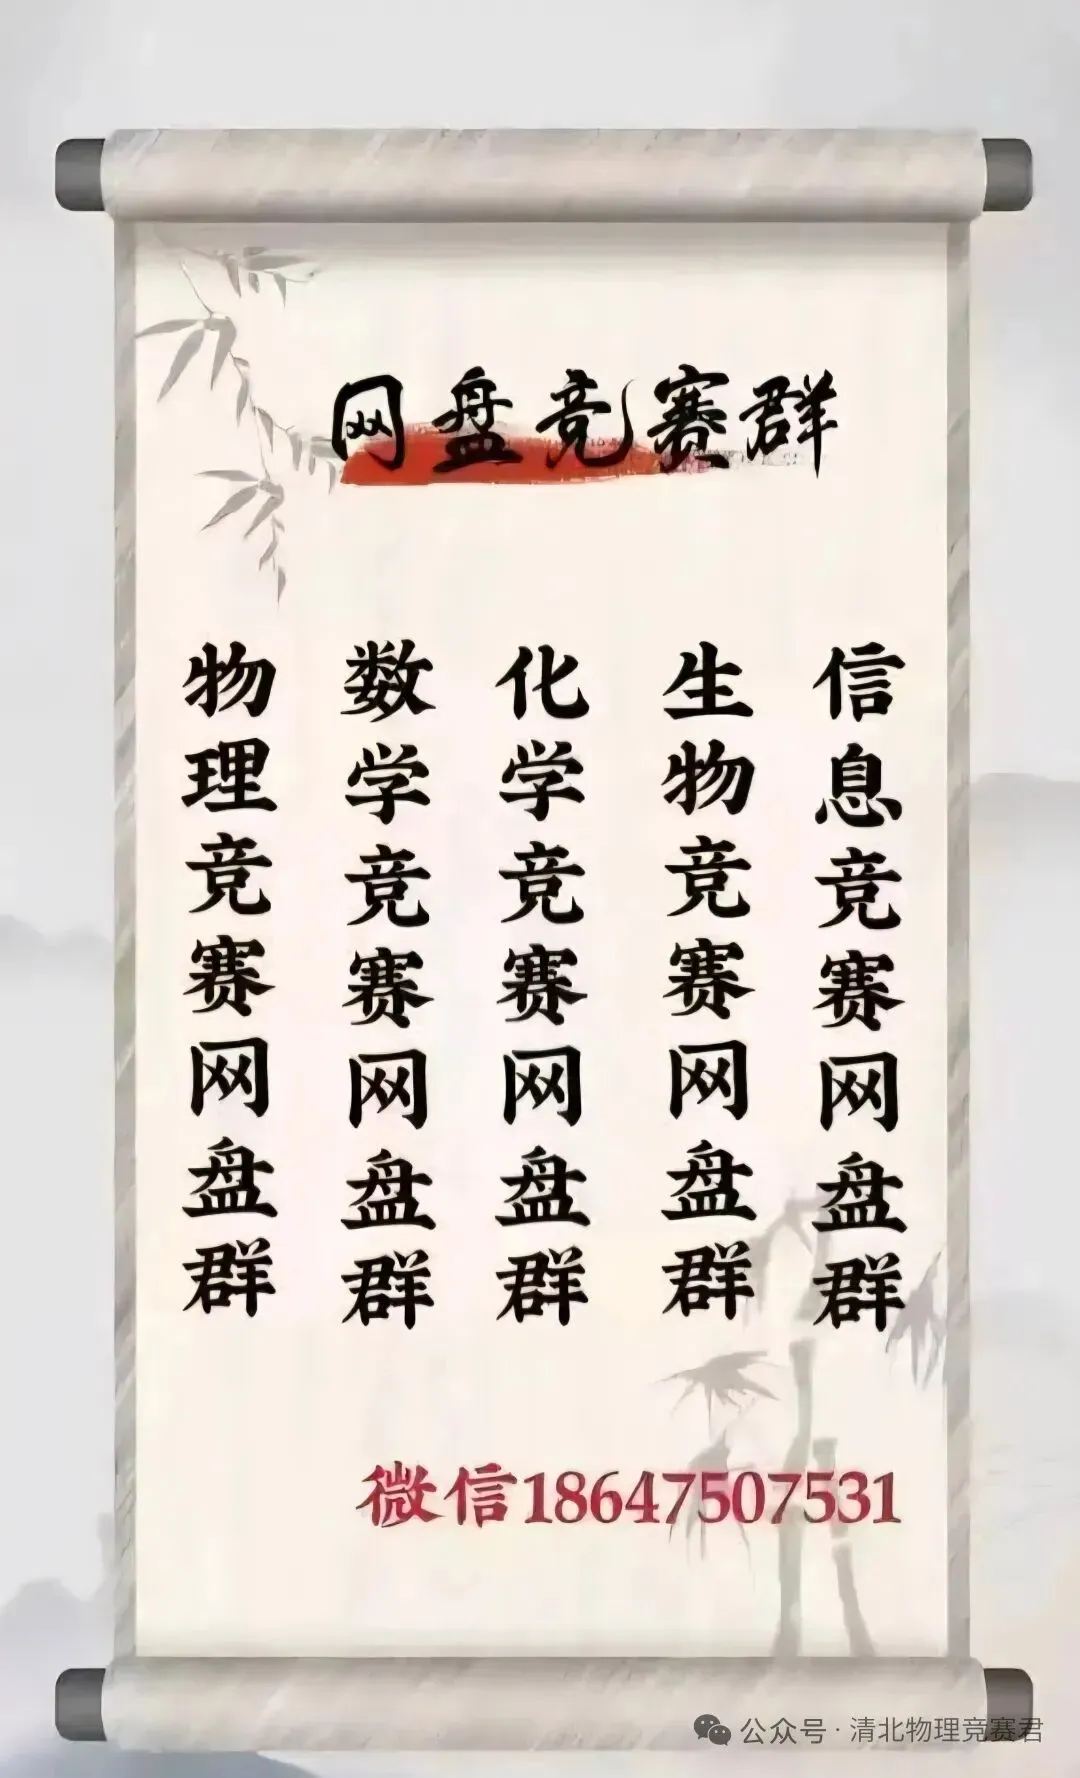 网盘竞赛群
物理竞赛网盘群
数学竞赛网盘群
化学竞赛网盘群
生物竞赛网盘群
信息竞赛网盘群
微信18647507531
公众号·清北物理竞赛君